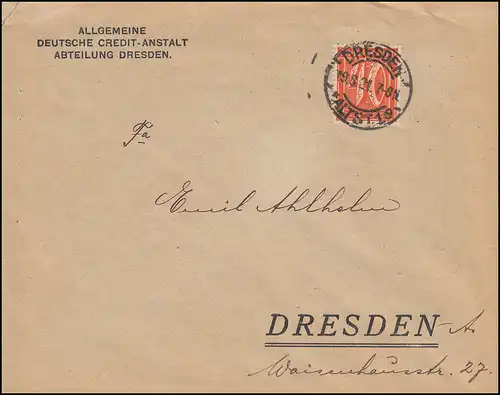 ALLGEMEINE
DEUTSCHE CREDIT-ANSTALT
ABTEILUNG DRESDEN.
DRESDEN
40
ALTST.
Fa
Emil Ahlhelm
DRESDEN-A.
Waisenhausstr. 27.